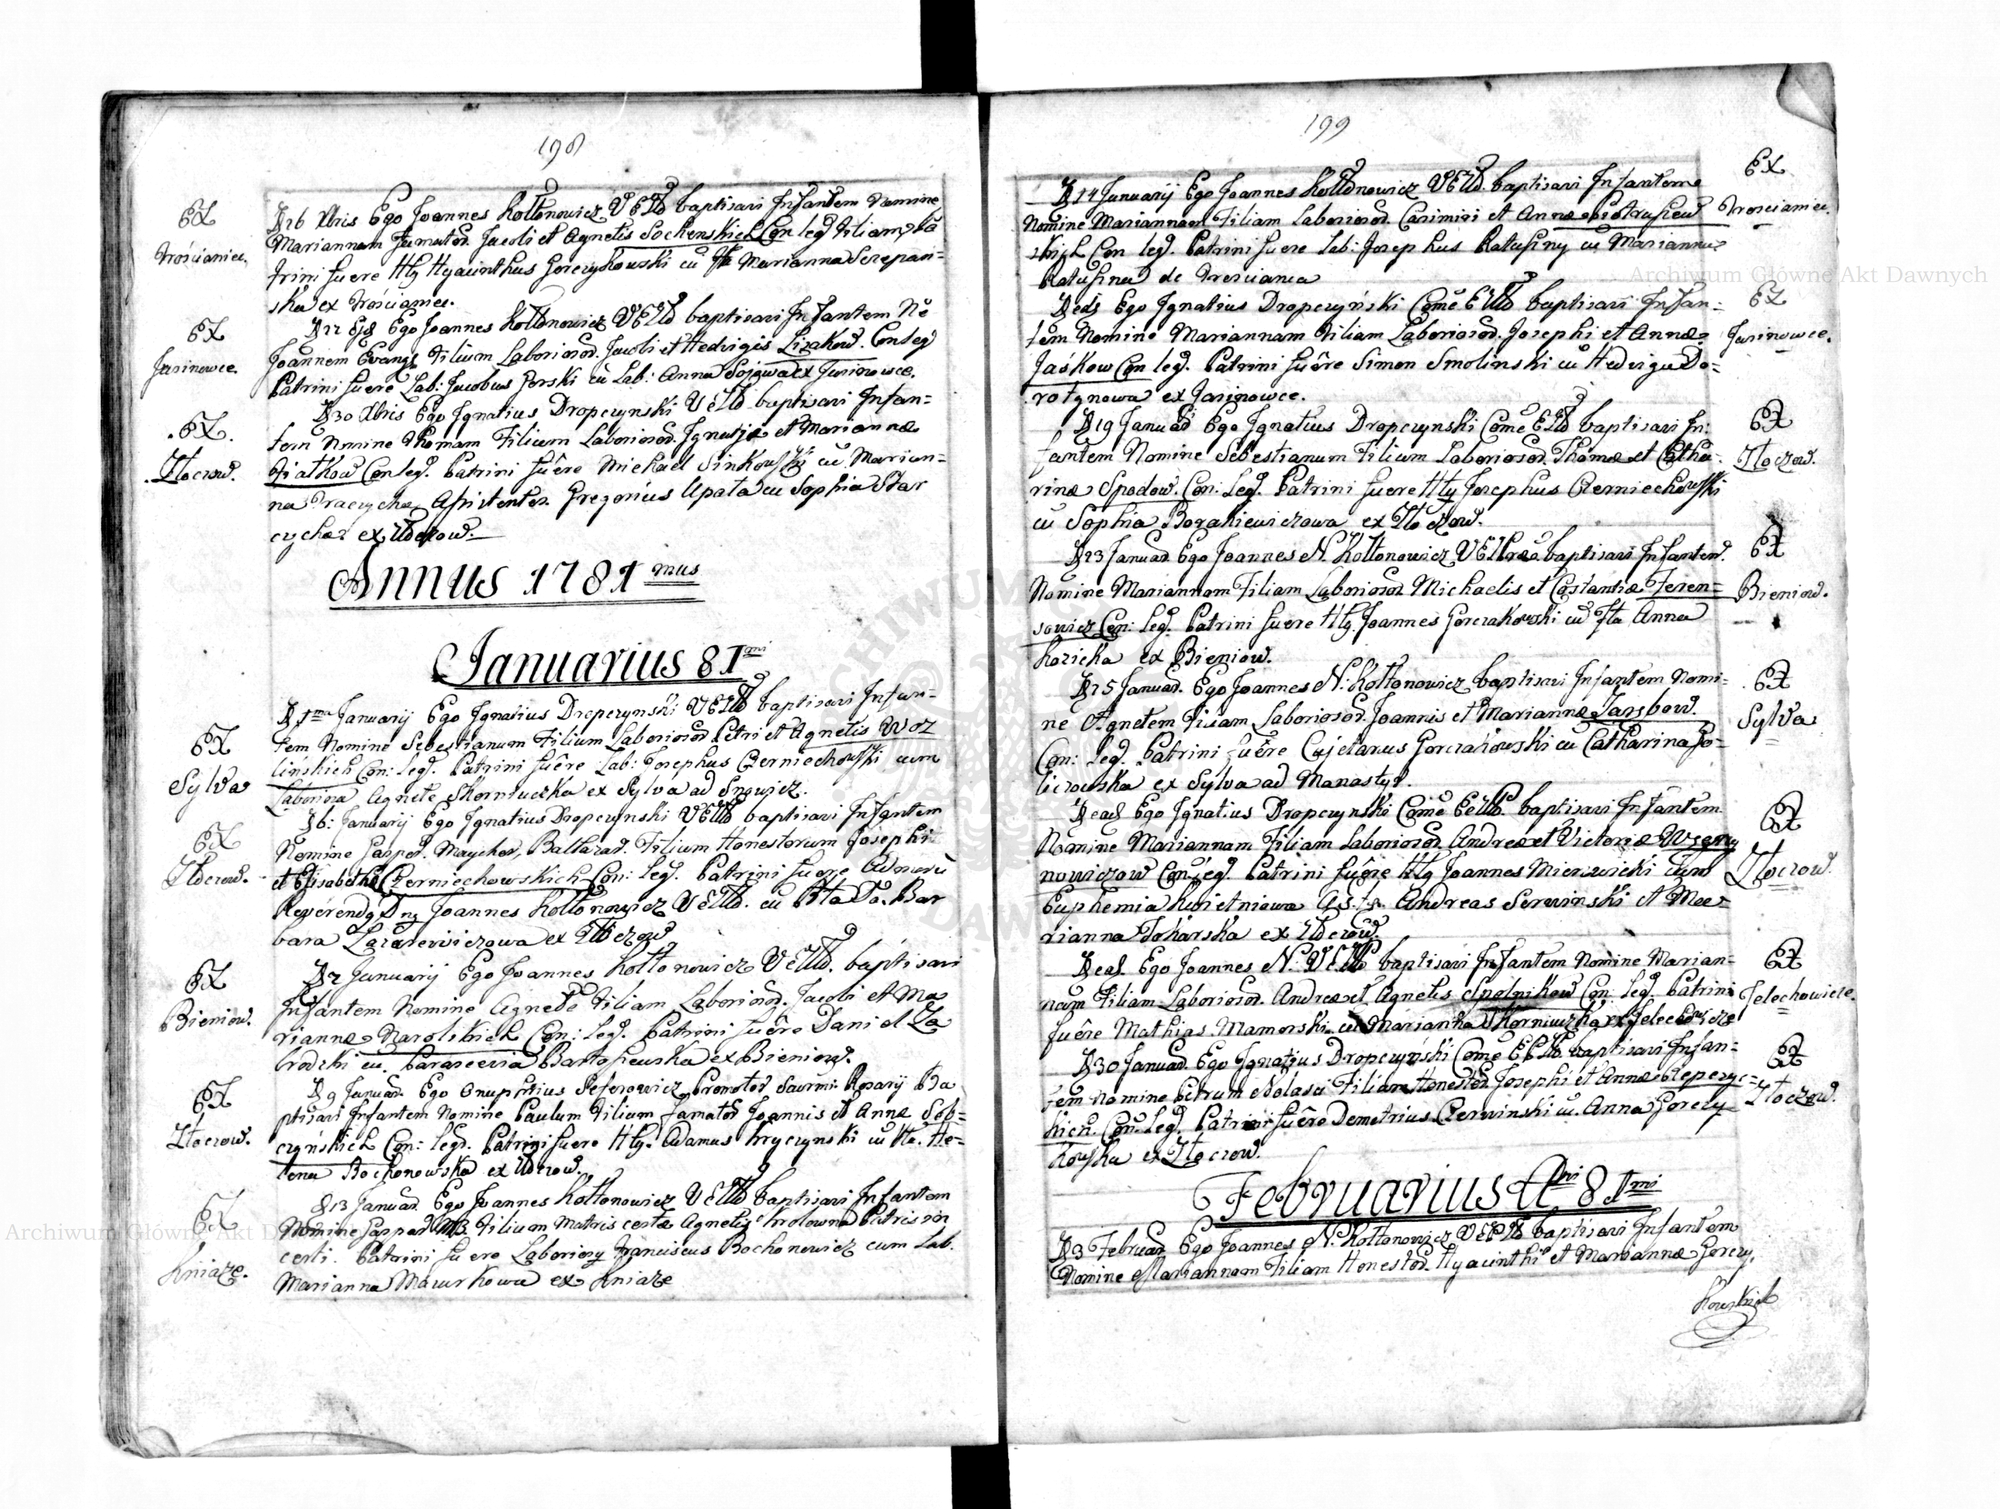 198
Ex Trościaniec.
D 26 Xbris Ego Joannes Kołtonowicz VEZłł baptisavi Infantem Nomine
Mariannam Famator. Jacobi et Agnetis Sochenskich Con leg Filiam Pa
trini fuere Mg Hyacinthus Gorczykowski cu Mariana Szczepan-
ska ex Trościaniec.
Ex Jasinowce.
Ego Joannes Kołtonowicz VEZłł baptisavi Infantem Ne
Joannem Evang Filium Laborioso. Jacobi et Hedvigis Lizakow. Con leg
Patrini fuere Lab: Jacobus Perski cu Lab: Anna Sojowa ex Jasinowce.
.Ex. Złoczow.
D 30 Xbris Ego Ignatius Dropczynski VEZłł baptisavi Infan=
tem Nomine Thomam Filium Laborioso. Ignatij et Mariannæ
Con leg. Patrini fuêre Michael Sinkowski cu Marian-
na Assistentes. Gregorius Upata cu Sophia Star
cycha ex Złoczow.
Annus 1781mus
Januarius 81mi
Ex Sylva
D 1ma Januarij Ego Ignatius Dropczynski VEZłł baptisavi Infan-
tem Nomine Sebestianum Filium Laborioso. Petri et Agnetis Woz
linskich Con: leg. Patrini fuêre Lab: Josephus Czerniechowski cum
Laboriosa Agnete Skorniuczka ex Sylva ad Snowicz.
Ex Złoczow.
D 6: Januarij Ego Ignatius Dropczynski VEZłł baptisavi Infantem
Nomine Gasper. Maycher, Baltazar. Filium Honestorum Josephi
et Elisabethæ Czerniechowskich Con: leg. Patrini fuere Admodu
Reverendg Dng Joannes Kołtonowicz VEZłł. cu Da. Bar
bara Lazarewiczowa ex Złoczow
Ex Bieniow.
D 7 Januarij Ego Joannes Kołtonowicz VEZłł. baptisavi
Infantem Nomine Agnete Filiam Laborioso. Jacobi et Ma
riannæ Narolskich Con: leg. Patrini fuêre Daniel Za
brodzki cu. Parascevia Bartoszewska ex Bieniow.
Ex Złoczow.
D 9 Januar. Ego Onuphrius Promotor Rosarij Ba
ptisavi Infantem Nomine Paulum Filium Famator Joannis et Annæ Sob=
czyńskich Con: leg. Patrini fuere Mg. Adamus Kryczynski cu He=
lena Bochonowska ex Złoczow.
Ex Kniaze.
D 13 Januar. Ego Joannes Kołtonowicz VEZłł baptisavi Infantem
Nomine Gasper Filium Matris certæ Agnetis Krolowna Patris in
certi. Patrini fuere Laboriosg Franciscus Bochonowicz cum Lab.
Marianna Mazurkowa ex Kniaze
199
Ex Trościaniec.
D 14 Januarij Ego Joannes Kołtonowicz VEZłł. baptisavi Infantem
Nomine Mariannam Filiam Laborioso. Casimiri et Annæ
skich Con leg. Patrini fuere Lab: Josephus Ratuszny cu Marianna
Ratuszna de Trościaniec
Ex Jasinowce.
D ead Ego Ignatius Dropczyński Come EZłł baptisavi Infan=
tem Nomine Mariannam Filiam Laborioso. Josephi et Annæ
Jaśkow Con leg. Patrini fuêre Simon Smolinski cu Hedviga Do=
rotynowa ex Jasinowce.
Ex Złoczow.
D 19 Januar Ego Ignatius Dropczynski Come EZłł baptisavi In:
fantem Nomine Sebestianum Filium Laborioso. Thomæ et Catha-
rinæ Spodow. Con: leg. Patrini fuere Mg Josephus Czerniechowski
cu Sophia Borakiewiczowa ex Złoczow.
Ex Bieniow.
D 23 Januar. Ego Joannes N. Kołtonowicz baptisavi Infantem.
Nomine Mariannam Filiam Laborioso Michaelis et Costantiæ Feren=
sowicz Con: leg. Patrini fuere Mg. Joannes Gorczakowski cu Anna
Kozicka ex Bieniow.
Ex Sylva
D 25 Januar. Ego Joannes N: Kołtonowicz baptisavi Infantem Nomi-
ne Agnetem Filiam Laborioso. Joannis et Mariannæ
Con: leg. Patrini fuêre Cajetanus Gorczakowski cu Catharina Go=
liczowska ex Sylva ad Manastyr.
Ex Złoczow.
D ead Ego Ignatius Dropczynski Come EZłł. baptisavi Infantem
Nomine Mariannam Filiam Laborioso. Andreæ et Victoriæ
nowiczow Con leg. Patrini fuêre Mg Joannes cum
Euphemia Kwietniowa Andreas Serwinski et Ma=
rianna Tokarska ex Złoczow.
Ex Jelechowice.
D ead. Ego Joannes N: VEZłł baptisavi Infantem Nomine Marian=
nam Filiam Laborioso. Andreæ et Agnetis Spolnikow Con: leg. Patrini
fuêre Mathias Mamorski cu Marianna Skorniuczka ex Jelechowicze
Ex Złoczow.
D 30 Januar. Ego Ignatius Dropczyński Come EZłł baptisavi Infan=
tem Nomine Petrum Nolasci Filium Honestor. Josephi et Annæ
kich. Con. leg. Patrini fuêre Demetrius Czerwinski cu. Anna Gorczy
kowska ex Złoczow.
Februarius Ani 81mi
D 3 Februar. Ego Joannes N. Kołtonowicz VEZłł baptisavi Infantem
Nomine Mariannam Filiam Honestor. Hyacinthi et Mariannæ Gorczy,
kowskich
Archiwum Główne Akt Dawnych
Archiwum Główne Akt Dawnych